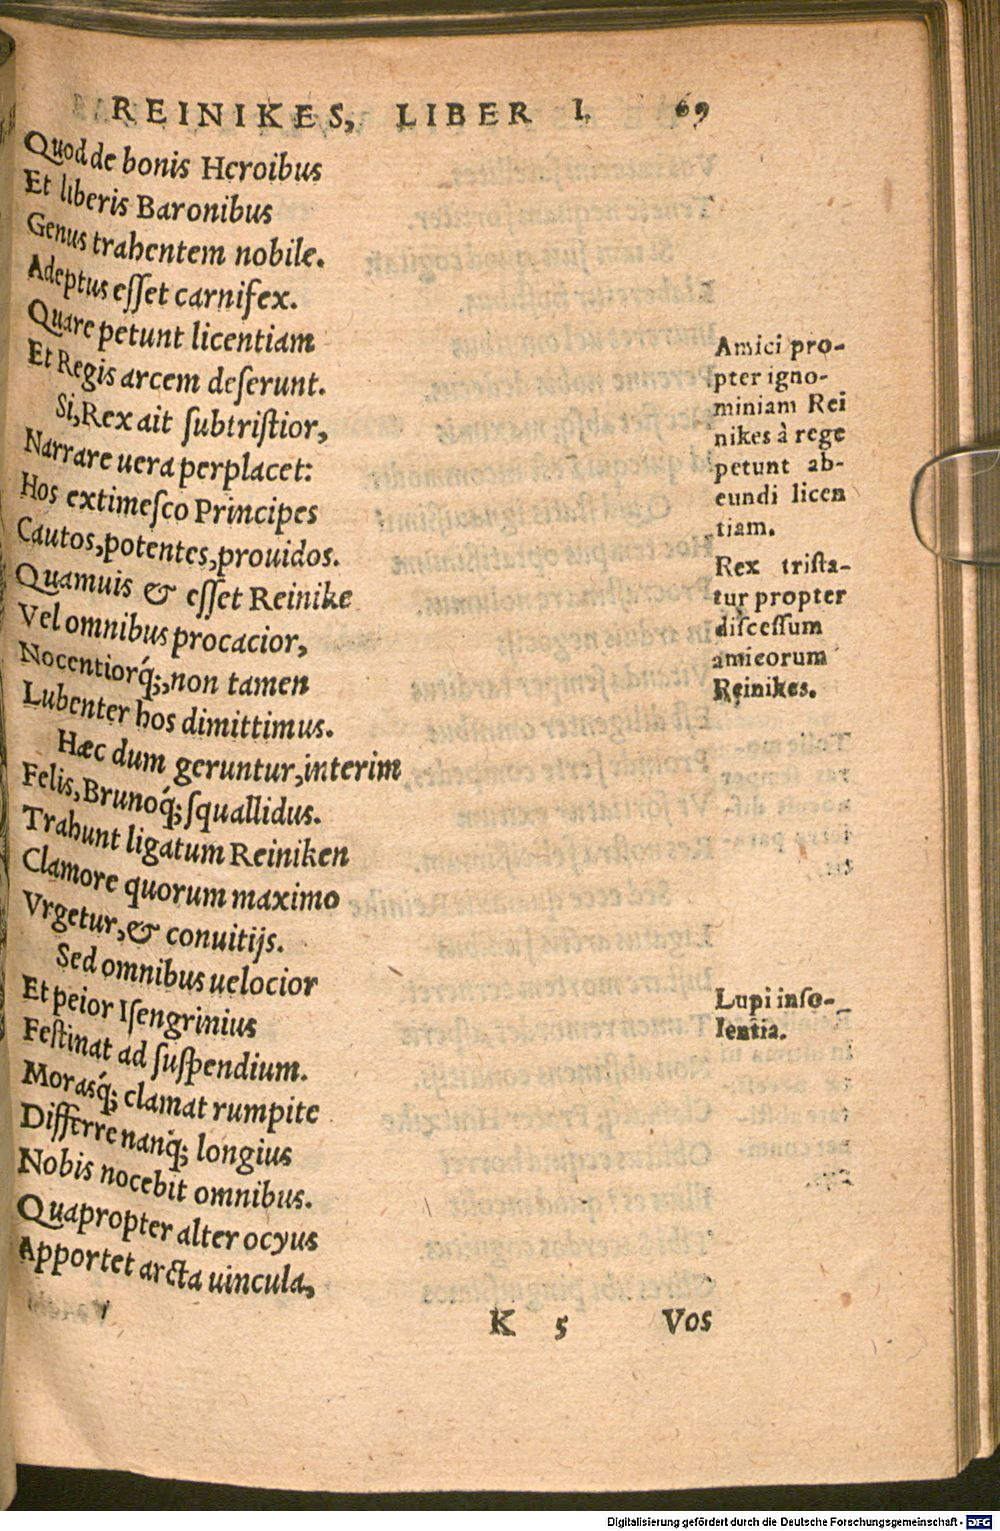 REINIKES, LIBER I. 69
Quod de bonis Heroibus
Et liberis Baronibus
Genus trahentem nobile.
Adeptus eſſet carnifex.
Quare petunt licentiam
Et Regis arcem deſerunt.
Si, Rex ait ſubtriſtior,
Narrare uera perplacet:
Hos extimeſco Principes
Cautos, potentes, prouidos.
Quamuis & eſſet Reinike
Vel omnibus procacior,
Nocentiorq́;, non tamen
Lubenter hos dimittimus.
Hæc dum geruntur, interim
Felis, Brunoq́; ſquallidus.
Trahunt ligatum Reiniken
Clamore quorum maximo
Vrgetur, & conuitijs.
Sed omnibus uelocior
Et peior Iſengrinius
Feſtinat ad ſuſpendium.
Morasq́; clamat rumpite
Differre nanq́; longius
Nobis nocebit omnibus.
Quapropter alter ocyus
Apportet arcta uincula,
Amici pro-
pter igno-
miniam Rei
nikes à rege
petunt ab-
eundi licen
tiam.
Rex triſta-
tur propter
diſceſſum
amicorum
Reinikes.
Lupi inſo-
lentia.
K 5 Vos
Digitalisierung gefördert durch die Deutsche Forschungsgemeinschaft - DFG